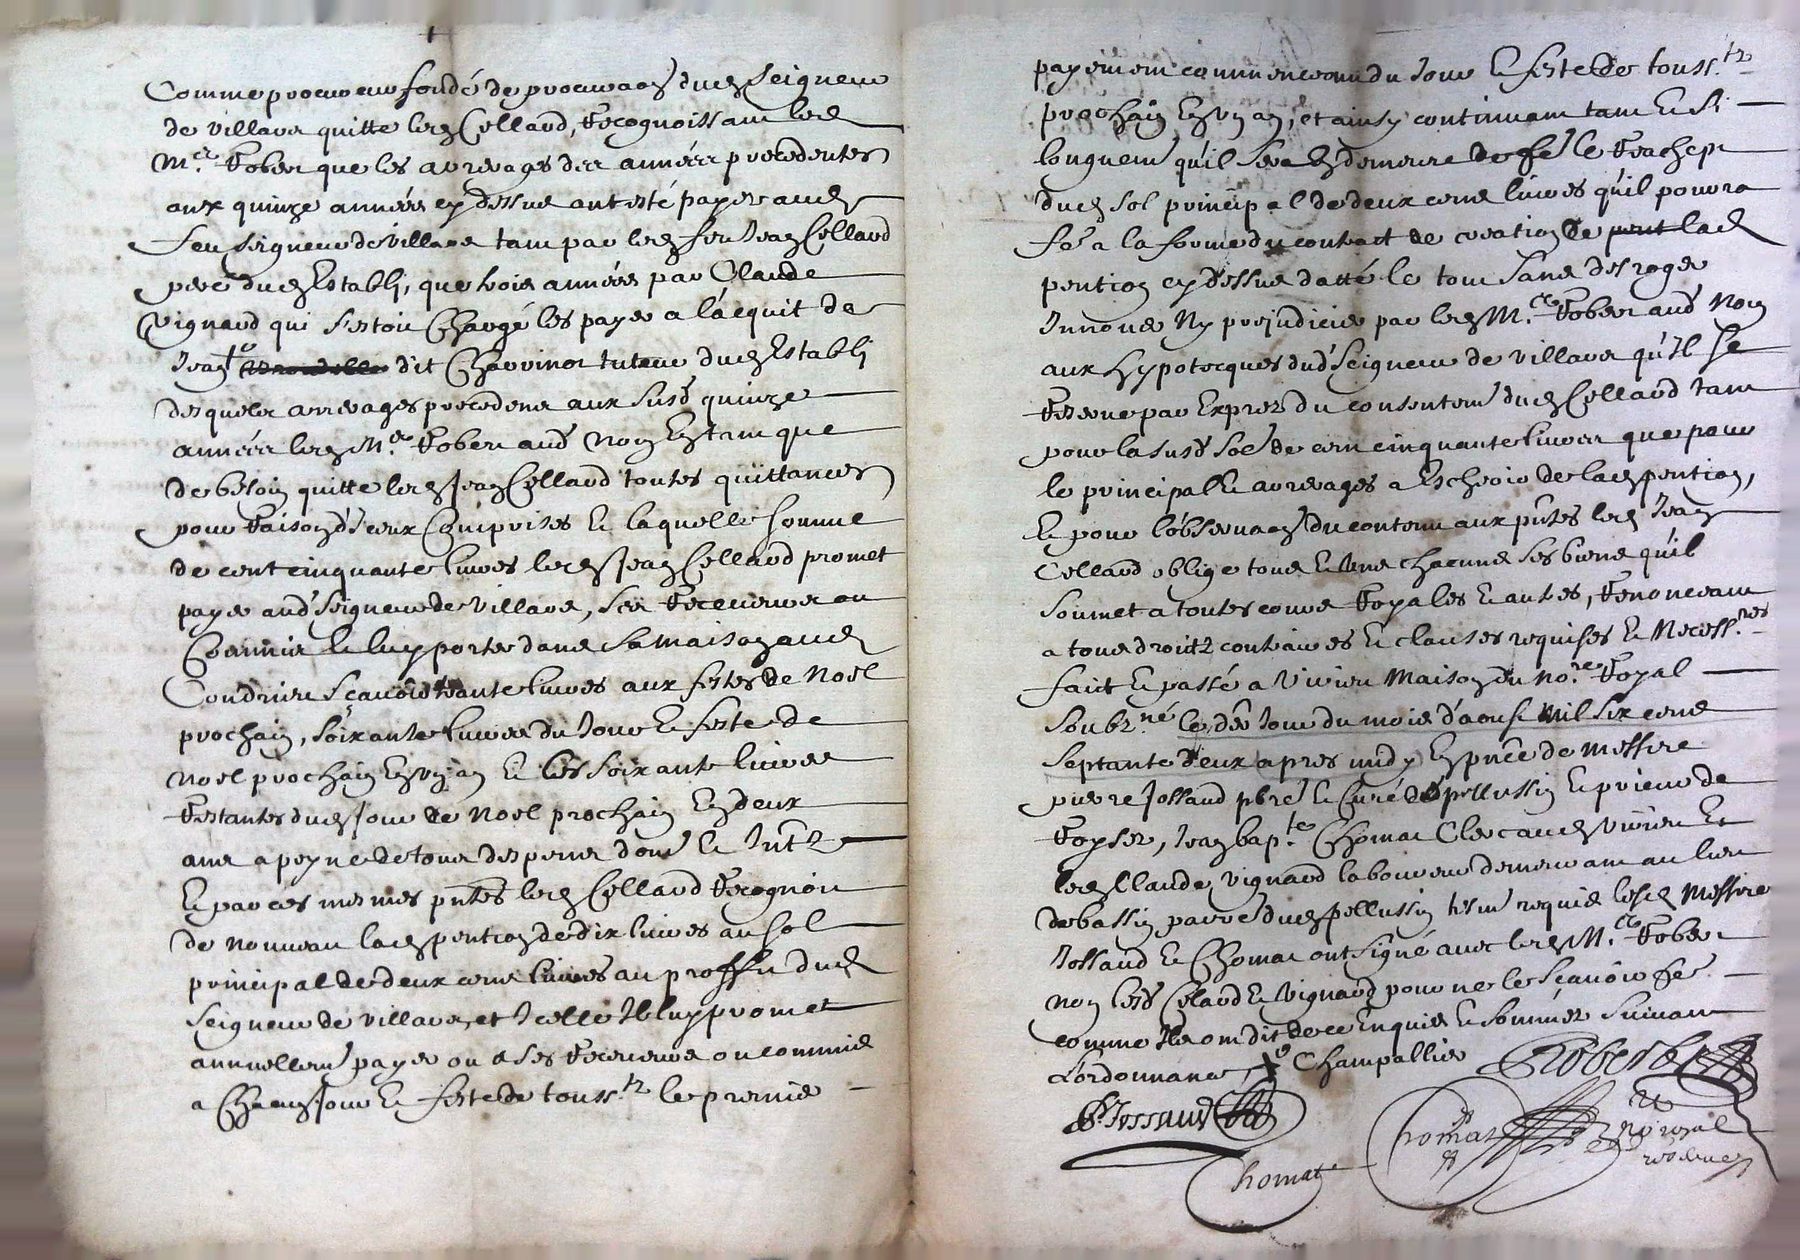 Comme procureur fondé de procuraon dud Seigneur
de Villars quitte led Collaud, Recognoissant led
Mre Robert que les arrerages des années precedentes
aux quinze années cy dessus ont esté payez aud
feu Seigneur de Villars tant par led feu Jean Collaud
pere dud Establj, que trois années par Claude
Vignaud qui s'estoit Chargé les payer a l'acquit de
Jean dit Charvinot tuteur dud Establj
desquelz arrerages precedens aux susd quinze
années led Mre Robert aud Nom En tant que
de besoin quitte led Jean Collaud toutes quittances
pour Raison d'iceux Comprises Et laquelle somme
de cent cinquante livres led Jean Collaud promet
payer aud Seigneur de Villars, ses Recepveurs ou
Commis Et luy porter dans sa maison aud
Condrieu Sçavoir trante livres aux festes de Noel
prochain, soixante livres du Jour Et feste de
Noel prochain En un an Et les soixante livres
Restantes dud Jour de Noel prochain En deux
ans a peyne de tous despens dom Et Intz
Et par ces mesmes pntes led Collaud Recognoit
de nouveau lad pention de dix livres au sol
principal de deux cens livres au proffit dud
Seigneur de Villars, et Icelle Il luy promet
annuellemt payer ou a ses Receveurs ou commis
a Chacun Jour Et feste de Touss.tz le premier
payement commenceant du Jour Et feste de touss.tz
prochain En un an, et ainsy continuant tant Et si
longuemt qu'il sera En demeure de fe le Rachept
dud sol principal de deux cens livres qu'il pourra
fe a la forme du contract de creation de lad
pention cy dessus datté le tout sans desroger
Innover Ny prejudicier par led Mre Robert aud Nom
aux hypotecques dud Seigneur de Villars qu'Il se
Reserve par Exprez du consentemt dud Collaud tant
pour la susd soe de cent cinquante livres que pour
le principal Et arrerages a Escheoir de lad pention,
Et pour l'observaon du contenu aux pntes led Jean
Collaud oblige tous Et uns chacuns ses biens qu'il
soumet a toutes cours Royales Et autres, Renonceant
a tous droitz contraires Et clauses requises Et Necess.res
faict Et passé a Virieu Maison du No.re Royal
soubz.né le dix Jour du mois d'aoust Mil six cens
septante deux apres midy En pnce de Messire
pierre Jossaud pbre Et Curé de pellussin Et prieur de
Roysez, Jean bap.te Thomas Clerc aud Virieu Et
led Claude Vignaud laboureur demeurant au lieu
de bassin parre dud pellussin tesm requis lesd Messire
Jossaud Et Thomas ont signé avec led Mre Robert
non lesd Colaud Et Vignaud pour ne le sçavoir fe
comme Ils ont dit de ce Enquis Et sommez suivant
L'ordonnance, Champallier Robert
P. Jossaud
Thomas
Thomas
No royal